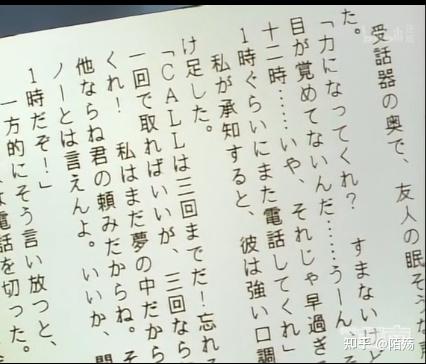 受話器の奥で、友人の眠そう
た。
「力になってくれ？　すまない
目が覚めてないんだ……うーん、
十二時……いや、それじゃ早過ぎ
1時ぐらいにまた電話してくれ」
私が承知すると、彼は強い口調
け足した。
「CALLは三回までだ！忘れる
一回で取ればいいが、三回なら
くれ！　私はまだ夢の中だから
他ならね君の頼みだからね。
ノーとは言えんよ。いいか、
1時だぞ！」
一方的にそう言い放つと、
電話を切った。
知乎 @陌殇